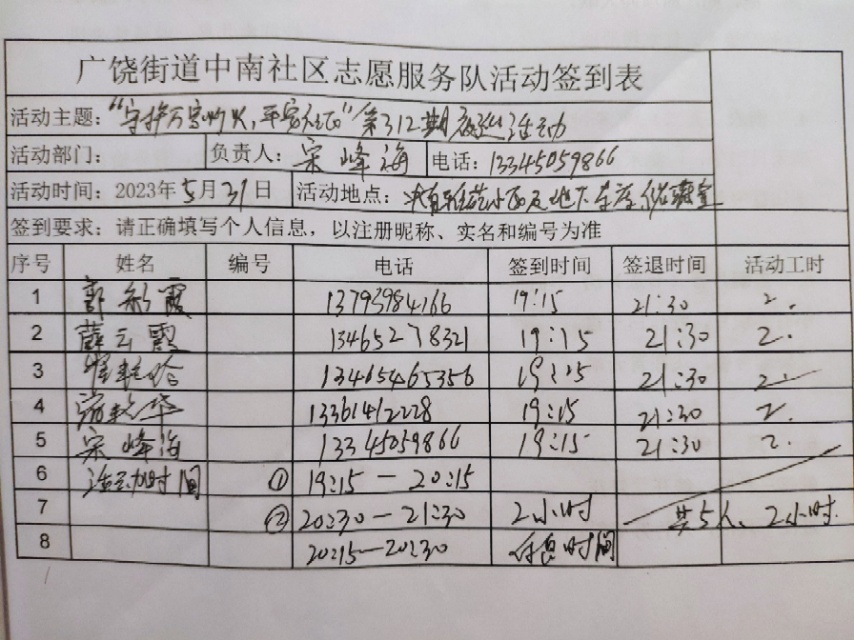 广饶街道中南社区志愿服务队活动签到表
活动主题："守护万家灯火,平安社区"第312期夜巡活动
活动部门： 负责人：宋峰海 电话：13345059866
活动时间：2023年5月31日 活动地点：地下车库
签到要求：请正确填写个人信息，以注册昵称、实名和编号为准
序号 姓名 编号 电话 签到时间 签退时间 活动工时
1 郭彩霞 13793984166 19:15 21:30 2.
2 薛云霞 13465278321 19:15 21:30 2.
3 13465465356 19:15 21:30 2.
4 13361412228 19:15 21:30 2.
5 宋峰海 13345059866 19:15 21:30 2.
6 活动时间 ① 19:15—20:15
7 ② 20:30—21:30 2小时 共5人、2小时.
8 20:15—20:30 休息时间